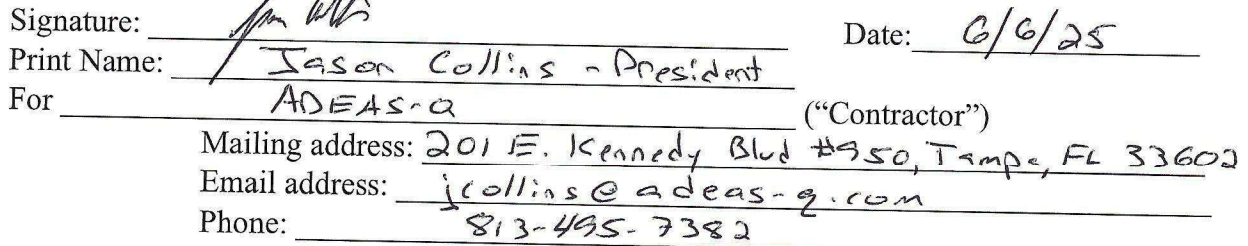 Signature: Date: 6/6/25
Print Name: Jason Collins - President
For ADEAS-Q ("Contractor")
Mailing address: 201 E. Kennedy Blvd #950, Tampa, FL 33602
Email address: jcollins@adeas-q.com
Phone: 813-495-7382